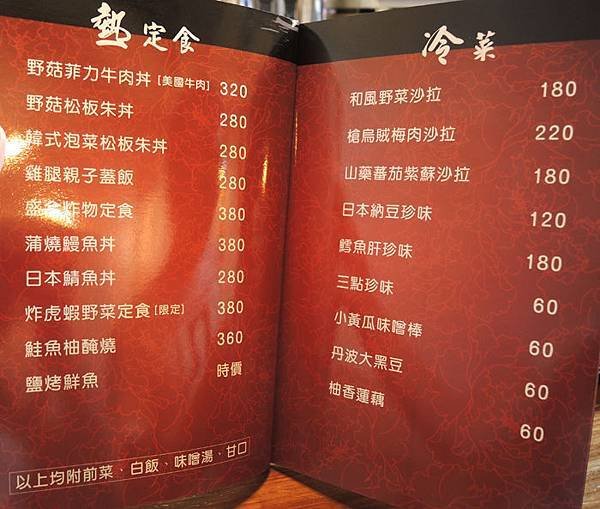 熱 定食
野菇菲力牛肉丼 [美國牛肉] 320
野菇松板朱丼 280
韓式泡菜松板朱丼 280
雞腿親子蓋飯 280
盛合炸物定食 380
蒲燒鰻魚丼 380
日本鯖魚丼 280
炸虎蝦野菜定食 [限定] 380
鮭魚柚醃燒 360
鹽烤鮮魚 時價
以上均附前菜、白飯、味噌湯、甘口
冷菜
和風野菜沙拉 180
槍烏賊梅肉沙拉 220
山藥蕃茄紫蘇沙拉 180
日本納豆珍味 120
鱈魚肝珍味 180
三點珍味 60
小黃瓜味噌棒 60
丹波大黑豆 60
柚香蓮藕 60